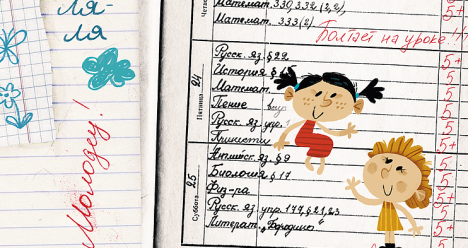 ля-
ля
Молодец!
Четве
Математ. 330, 332 (2,2)
Математ. 333 (2)
Болтает на уроке!!!
5+
5
Пятница
24
Русск. яз. § 22
История §
Математ.
Пение
Русск. яз. упр.
5+
5
5
5
5
5
Суббота
25
Английск. яз. § 9
Биология § 17
Физ-ра
Русск. яз. упр. 177, § 21, 23
Литерат. „Бородино"
5
5
5
5+
5